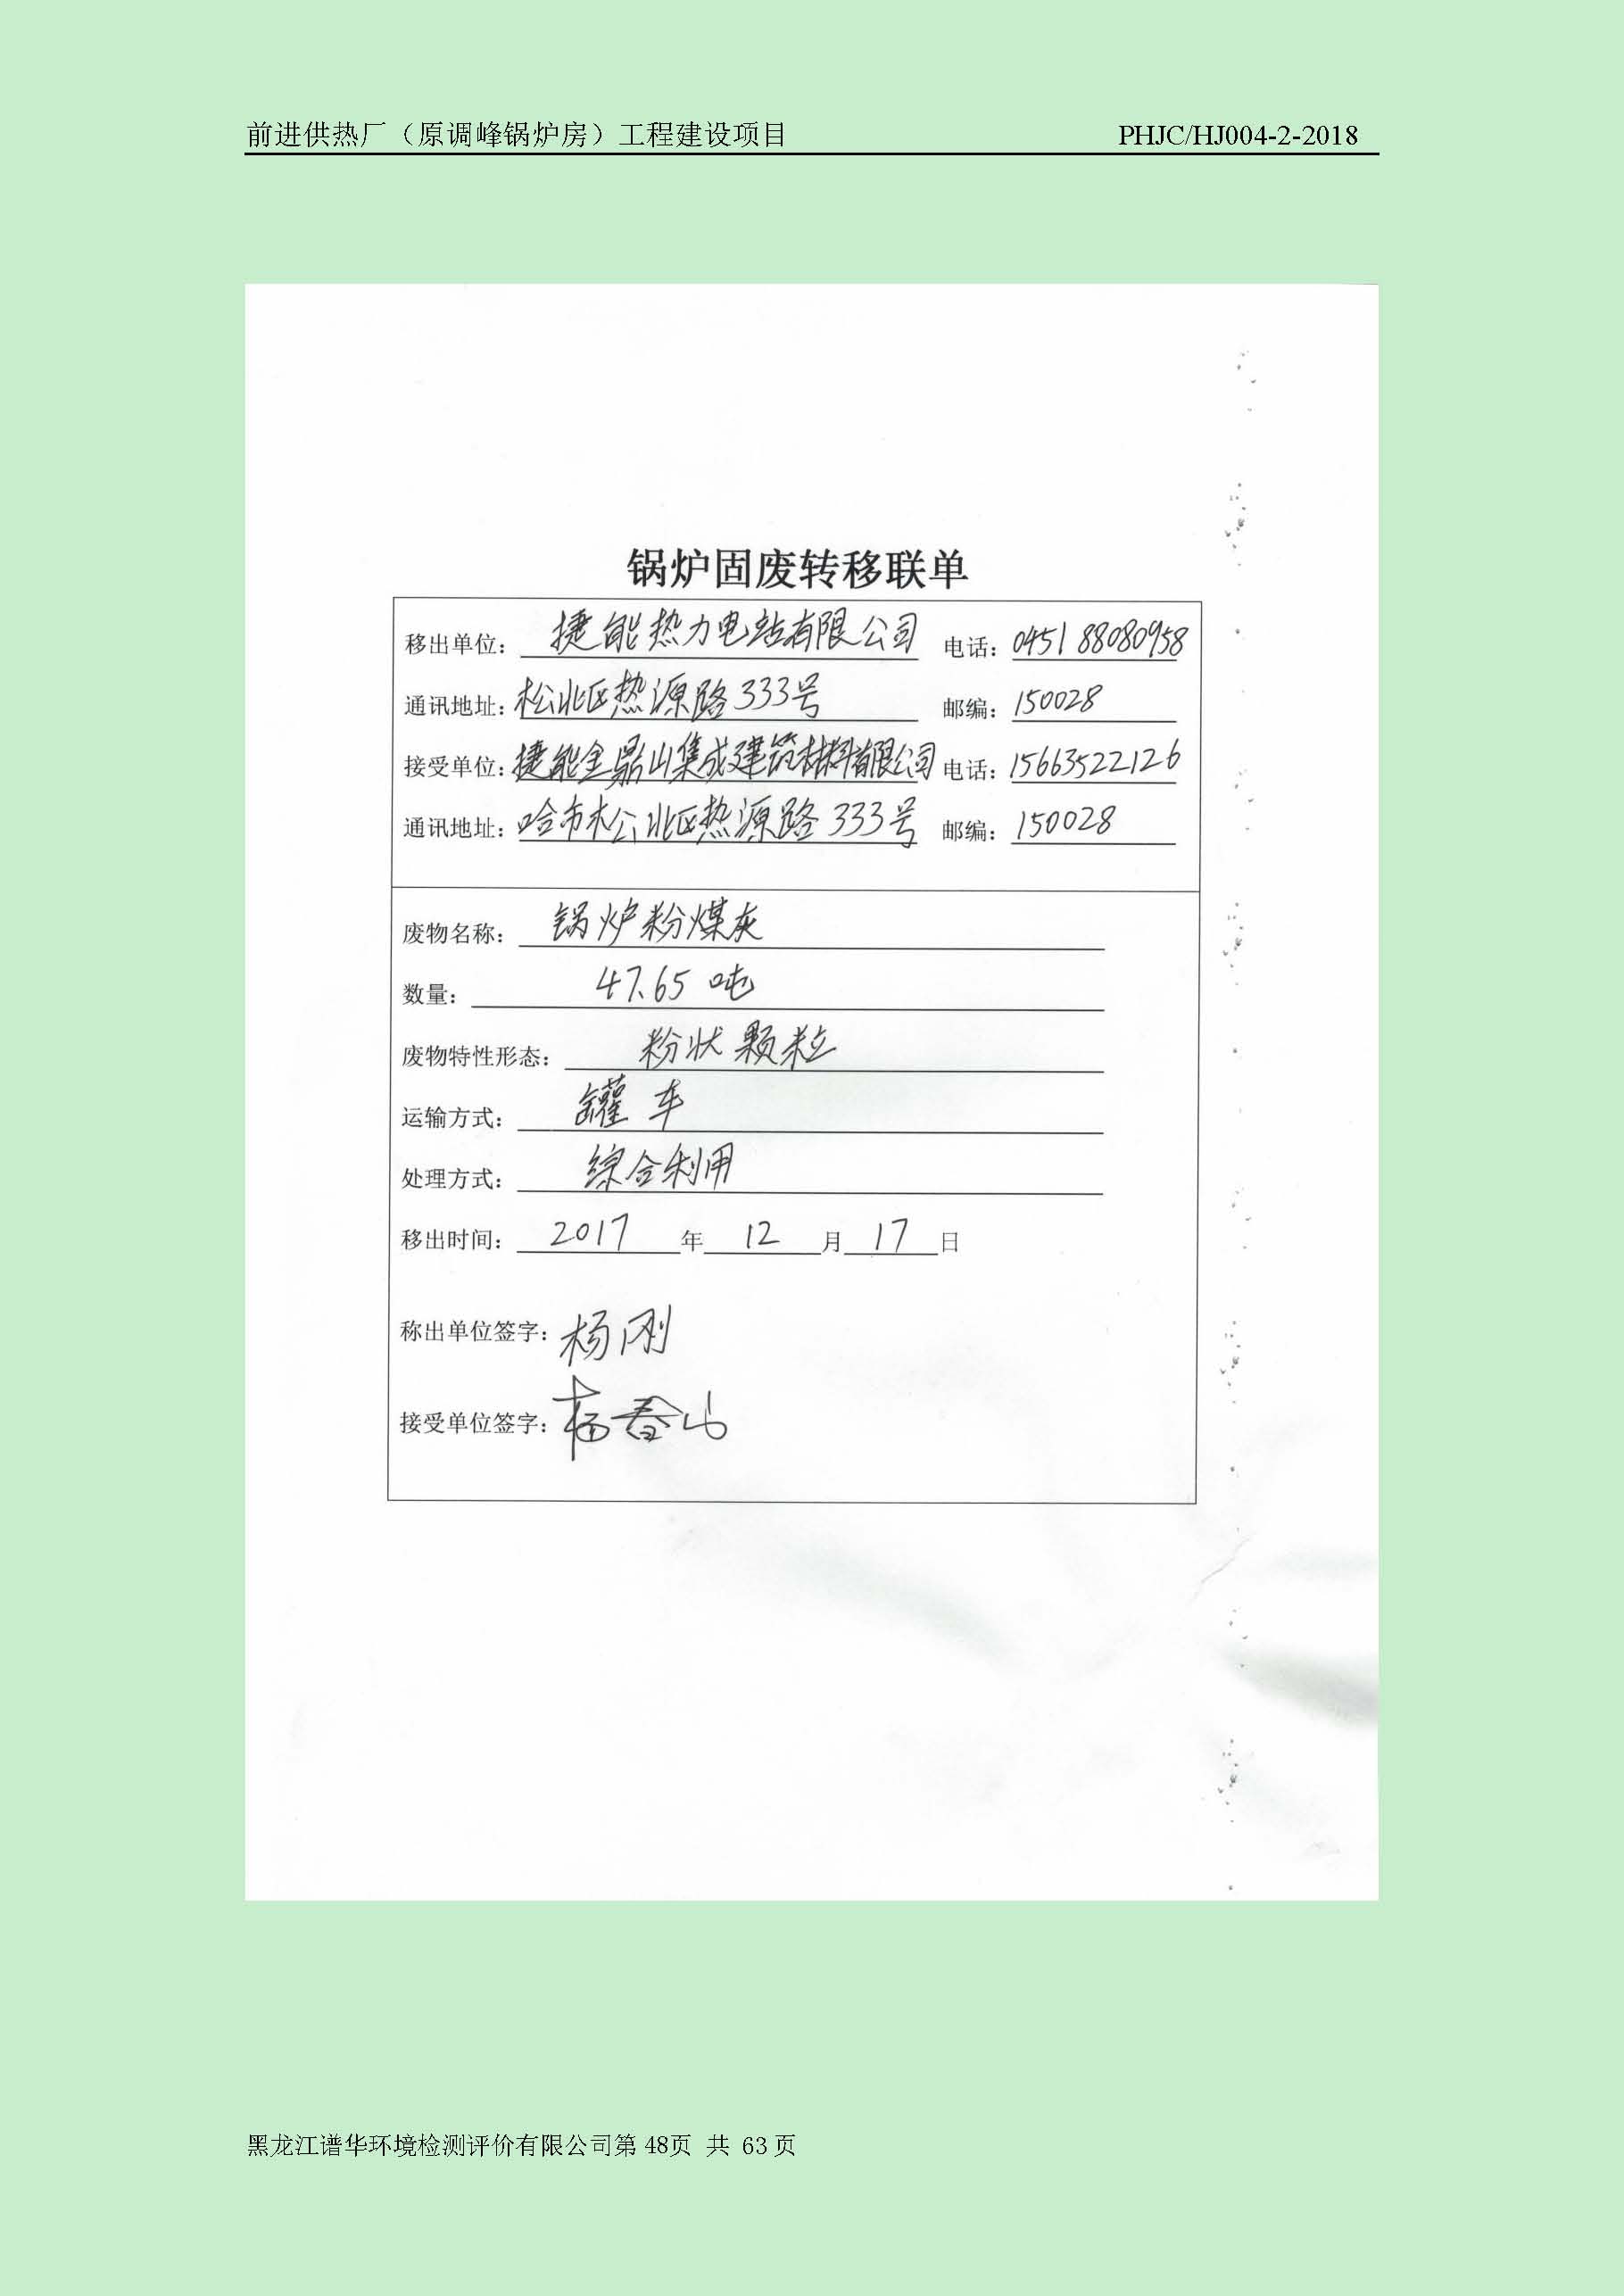 前进供热厂（原调峰锅炉房）工程建设项目 PHJC/HJ004-2-2018
锅炉固废转移联单
移出单位：捷能热力电站有限公司 电话：0451 88080958
通讯地址：松北区热源路333号 邮编：150028
接受单位：捷能金鼎山集成建筑材料有限公司 电话：15663522126
通讯地址：哈市松北区热源路333号 邮编：150028
废物名称：锅炉粉煤灰
数量：47.65 吨
废物特性形态：粉状颗粒
运输方式：罐车
处理方式：综合利用
移出时间：2017年12月17日
称出单位签字：杨刚
接受单位签字：杨春山
黑龙江谱华环境检测评价有限公司第 48页 共 63 页